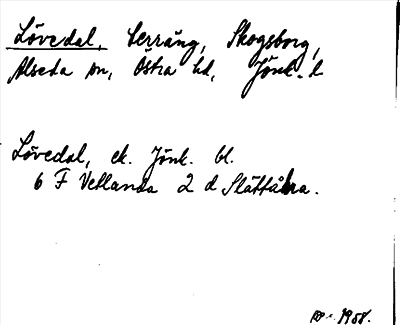 Lövedal, Lerräng, Skogsborg,
Alseda sn, Östra hd, Jönk. l
Lövedal, ek. Jönk. bl.
6 F Vetlanda 2 d Slättåkra.
1958.